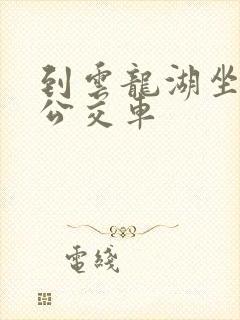 到雲龍湖坐
公交車
電綫